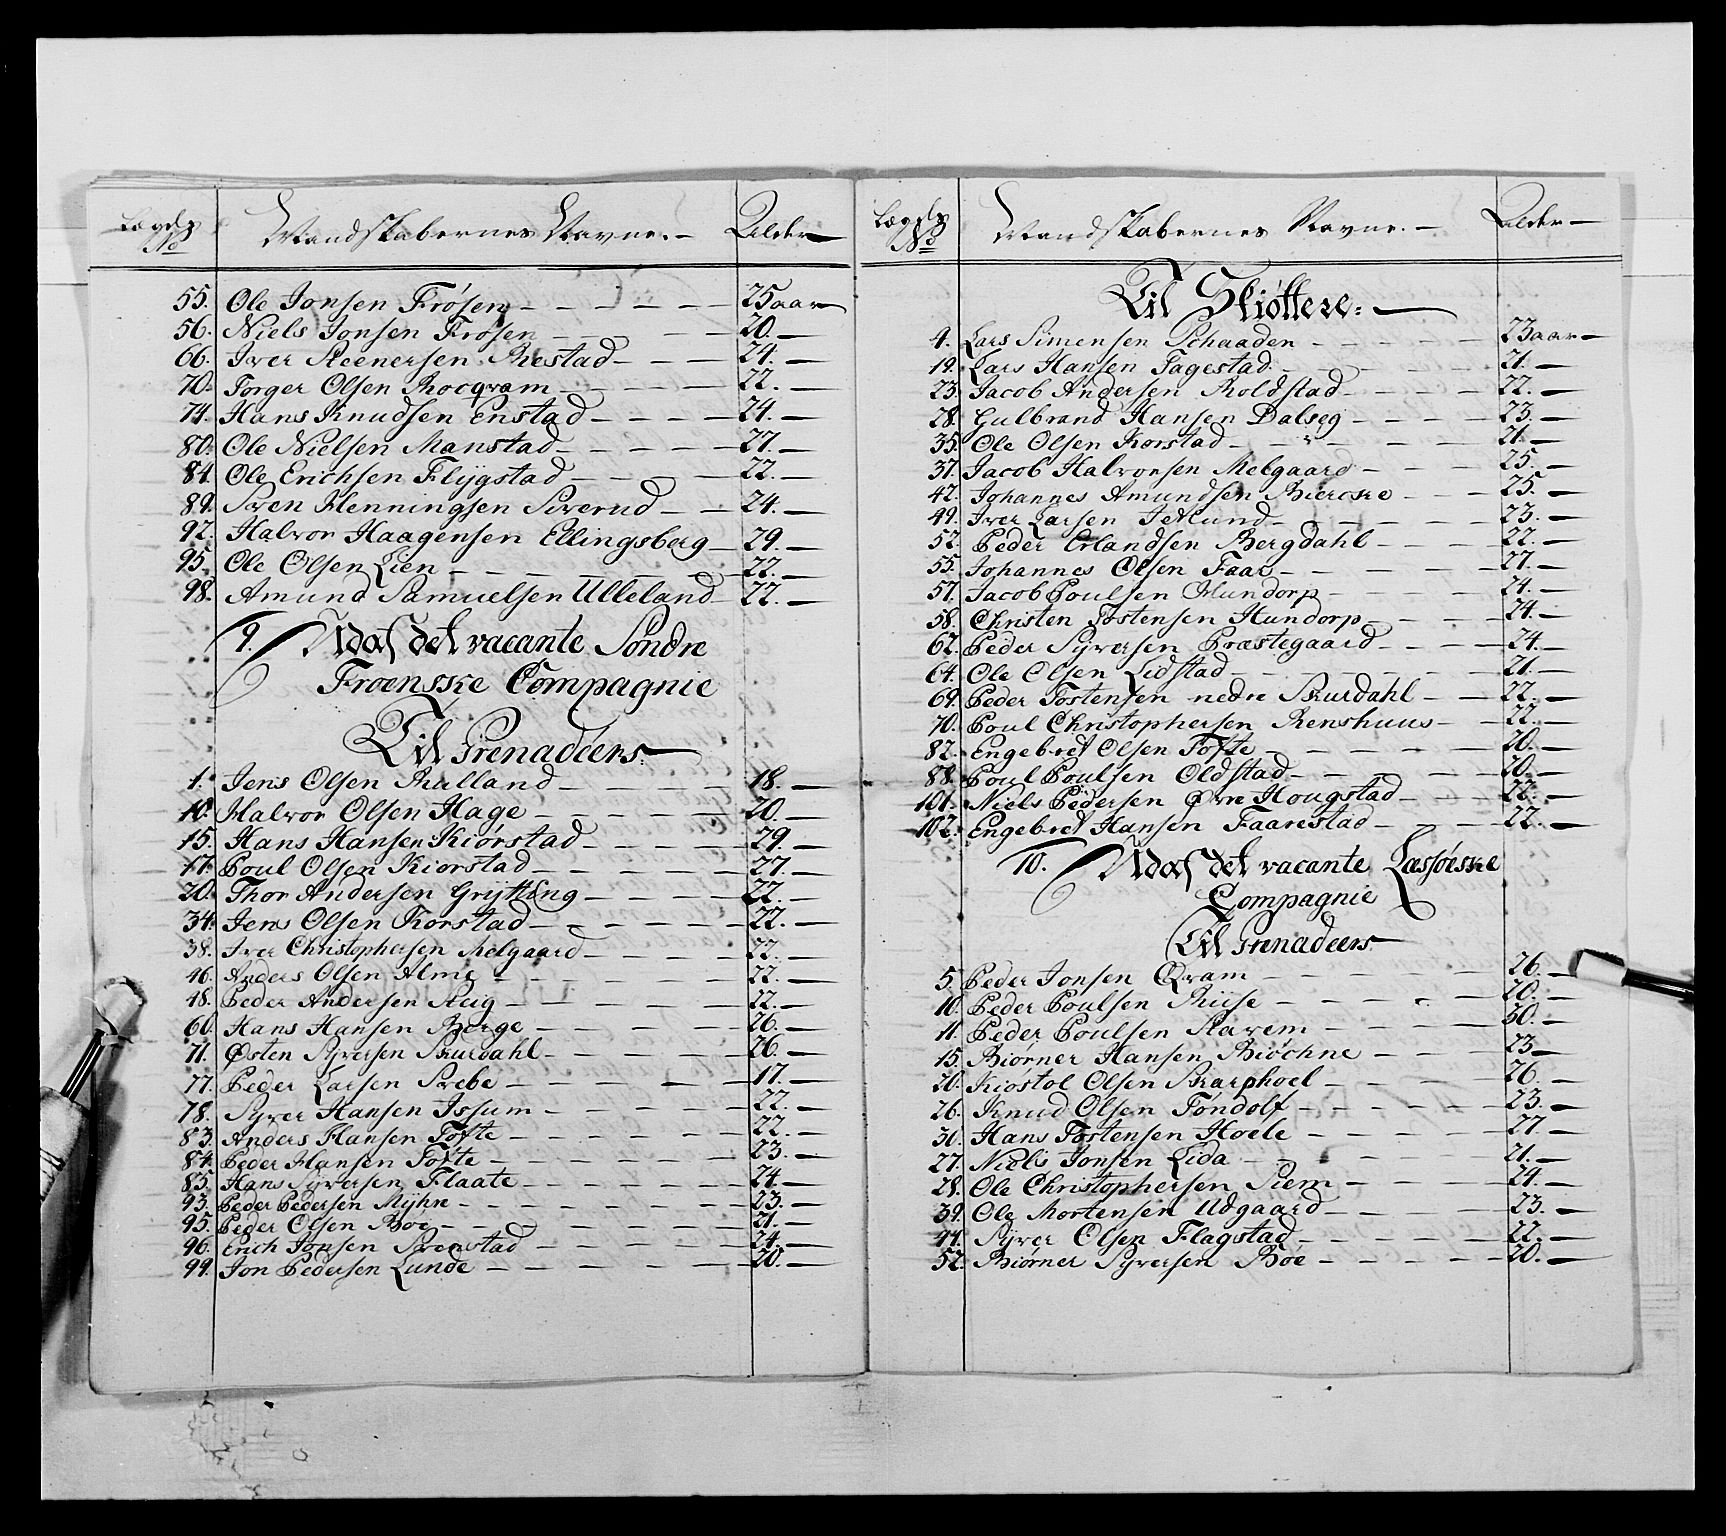 Lægds No | Mandskabernes Navne. | Alder
55. Ole Jonsen Frösen 25 aar
56. Niels Jonsen Frösen 20.
66. Iver Steenersen Restad 24.
70. Torger Olsen 22.
74. Hans Knudsen Enstad 24.
80. Ole Nielsen Manstad 27.
84. Ole Erichsen Flygstad 22.
89. Sven Henningsen Siverud 24.
92. Halvor Haagensen Ellingsberg 29.
95. Ole Olsen Lien 22.
98. Amund Samuelsen Ulleland 22.
9. Udaf det vacante Söndre
Froenske Compagnie
Til Grenadeers.
1. Jens Olsen Rulland 18.
10. Halvor Olsen Hage 20.
15. Hans Hansen Kiørstad 29.
17. Poul Olsen Kiorstad 27.
20. Thor Andersen Grytting 22.
34. Jens Olsen Korstad 22.
38. Iver Christophersen Melgaard 22.
46. Anders Olsen Alme 22.
48. Peder Andersen Steig 22.
60. Hans Hansen Berge 26.
71. Østen Syversen Skurdahl 26.
77. Peder Larsen Brebe 17.
78. Syver Hansen Issum 22.
83. Anders Hansen Tofte 22.
84. Peder Hansen Tofte 23.
85. Hans Syversen Flaate 24.
93. Peder Pedersen Myhre 23.
95. Peder Olsen Boe 21.
96. Erich Jonsen Svenstad 24.
99. Jon Pedersen Lunde 20.
Lægds No | Mandskabernes Navne. | Alder
Til Skiøttere:
4. Lars Simensen Schaaden 23 aar
19. Lars Hansen Fagestad 21.
23. Jacob Andersen Roldstad 22.
28. Gulbrand Hansen Dalseg 23.
35. Ole Olsen Korstad 21.
37. Jacob Halvorsen Melgaard 25.
42. Johannes Amundsen Bierche 25.
49. Iver Larsen 23.
52. Peder Erlandsen Bergdahl 22.
55. Johannes Olsen Faar 27.
57. Jacob Poulsen Hundorp 24.
58. Christen Tostensen Hundorp 24.
62. Peder Syversen Præstegaard 24.
64. Ole Olsen Lidstad 21.
69. Peder Tostensen nedre Skurdahl 22.
70. Poul Christophersen Renshuus 22.
82. Engebret Olsen Tofte 20.
88. Poul Poulsen Oldstad 20.
101. Niels Pedersen Øvre Hougstad 22.
102. Engebret Hansen Faarestad 22.
10. Udaf det vacante Læssöeske
Compagnie
Til Grenadeers
5. Peder Jonsen Qvam 26.
10. Peder Poulsen Riise 20.
11. Peder Poulsen Slarem 30.
15. Biörner Hansen Biöchne 23
20. Kiostol Olsen Skarphoel 26.
26. Knud Olsen Töndolf 23.
30. Hans Tostensen Hoele 27.
27. Niels Jonsen Lida 21.
28. Ole Christophersen Siem 24.
39. Ole Mortensen Udgaard 23.
44. Syver Olsen Flagstad 22.
52. Biörner Syversen Böe 20.